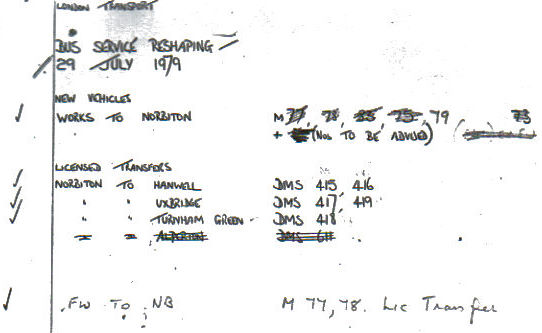 LONDON TRANSPORT
BUS SERVICE RESHAPING
29 JULY 1979
NEW VEHICLES
WORKS TO NORBITON M 77, 78, 79
+ (Nos TO BE ADVISED)
LICENSED TRANSFERS
NORBITON TO HANWELL DMS 415, 416
" " UXBRIDGE DMS 417, 419
" " TURNHAM GREEN DMS 418
" " ALPERTON DMS
FW TO NB M 77, 78. Lic Transfer